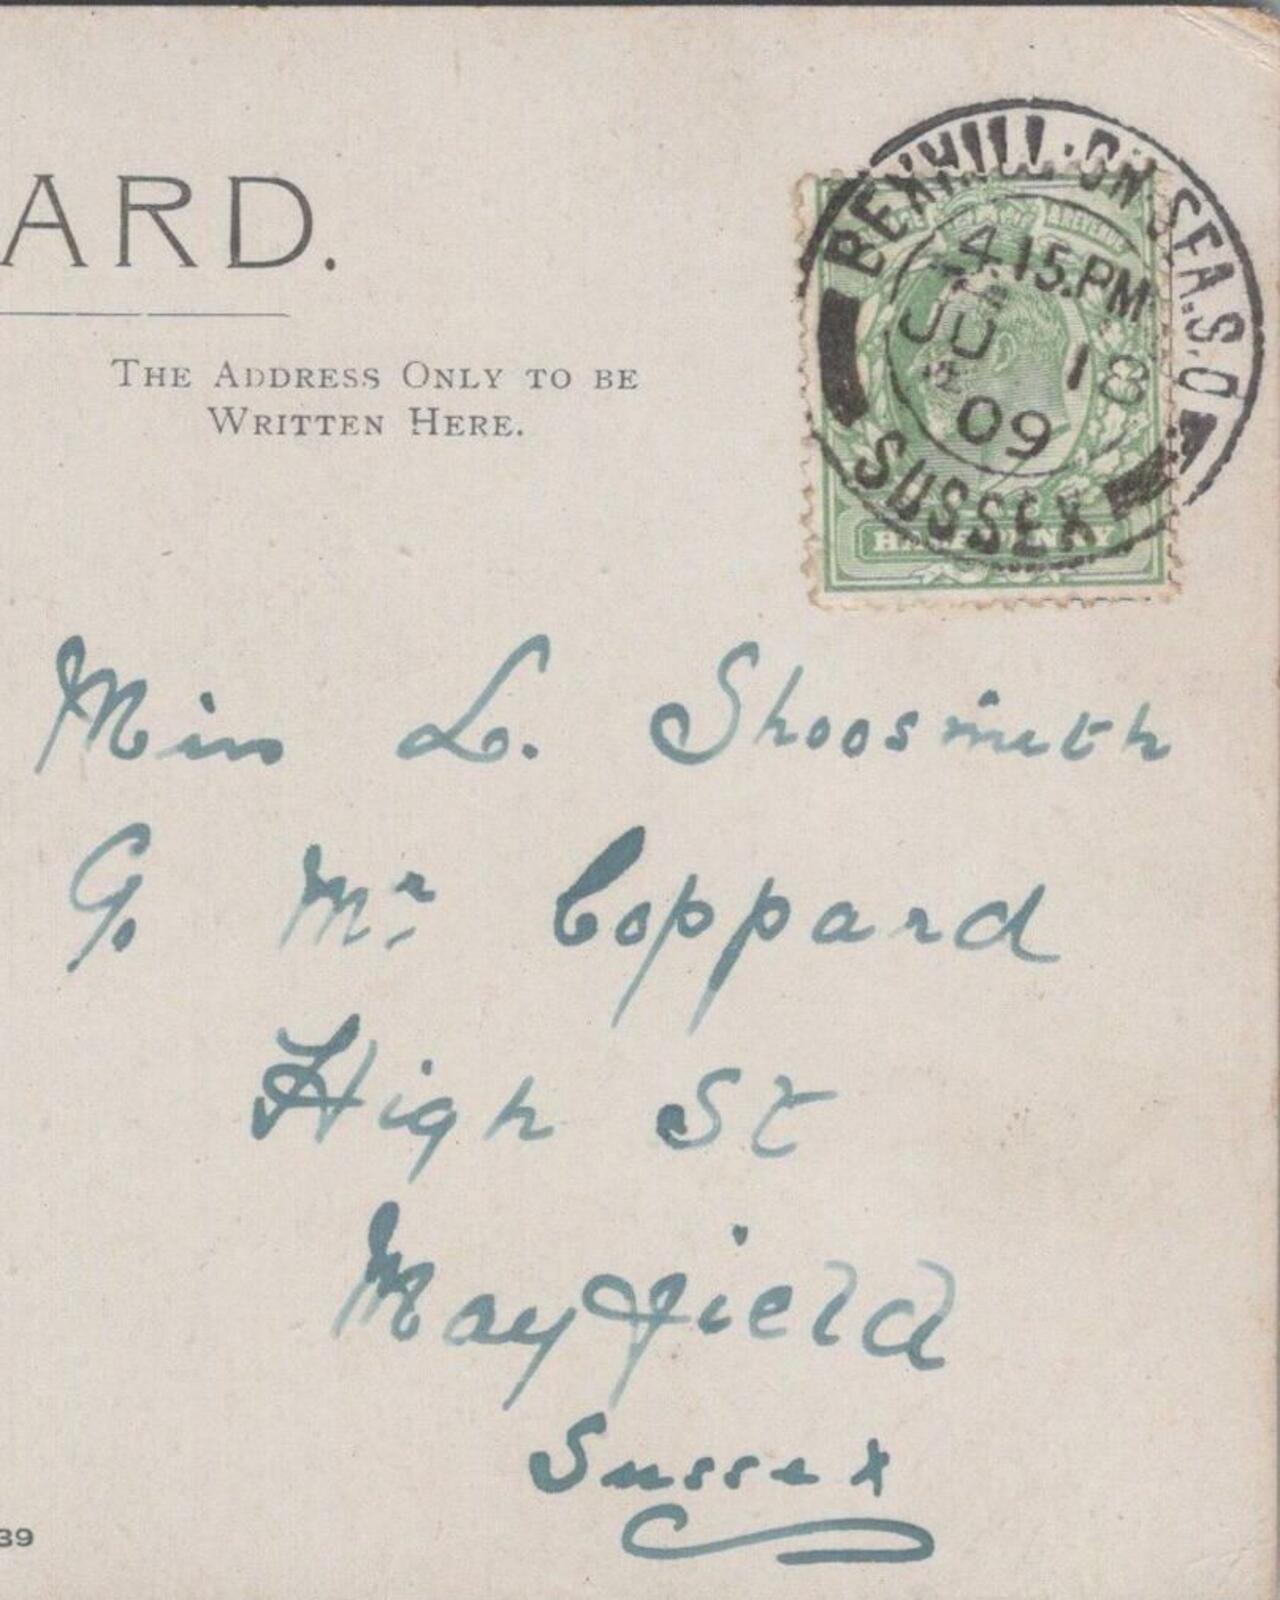 ARD.
THE ADDRESS ONLY TO BE
WRITTEN HERE.
BEXHILL·ON·SEA.S.O
4.15.PM
JU 18
09
SUSSEX
& REVENUE
HALFPENNY
Miss L. Shoosmith
Mr Coppard
High St
Mayfield
Sussex
39